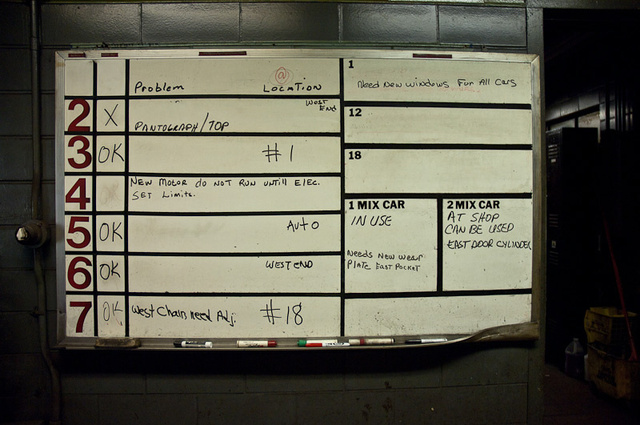 Problem @ LOCATION
2 X PANTOGRAPH/TOP WEST END
3 OK #1
4 NEW MOTOR do NOT RUN UNTILL ELEC.
SET LIMITS.
5 OK AUTO
6 OK WEST END
7 OK West Chain need Adj. #18
1
Need New windows For All Cars
12
18
1 MIX CAR
IN USE
Needs New wear
Plate East Pocket
2 MIX CAR
AT SHOP
CAN BE USED
EAST DOOR CYLINDER